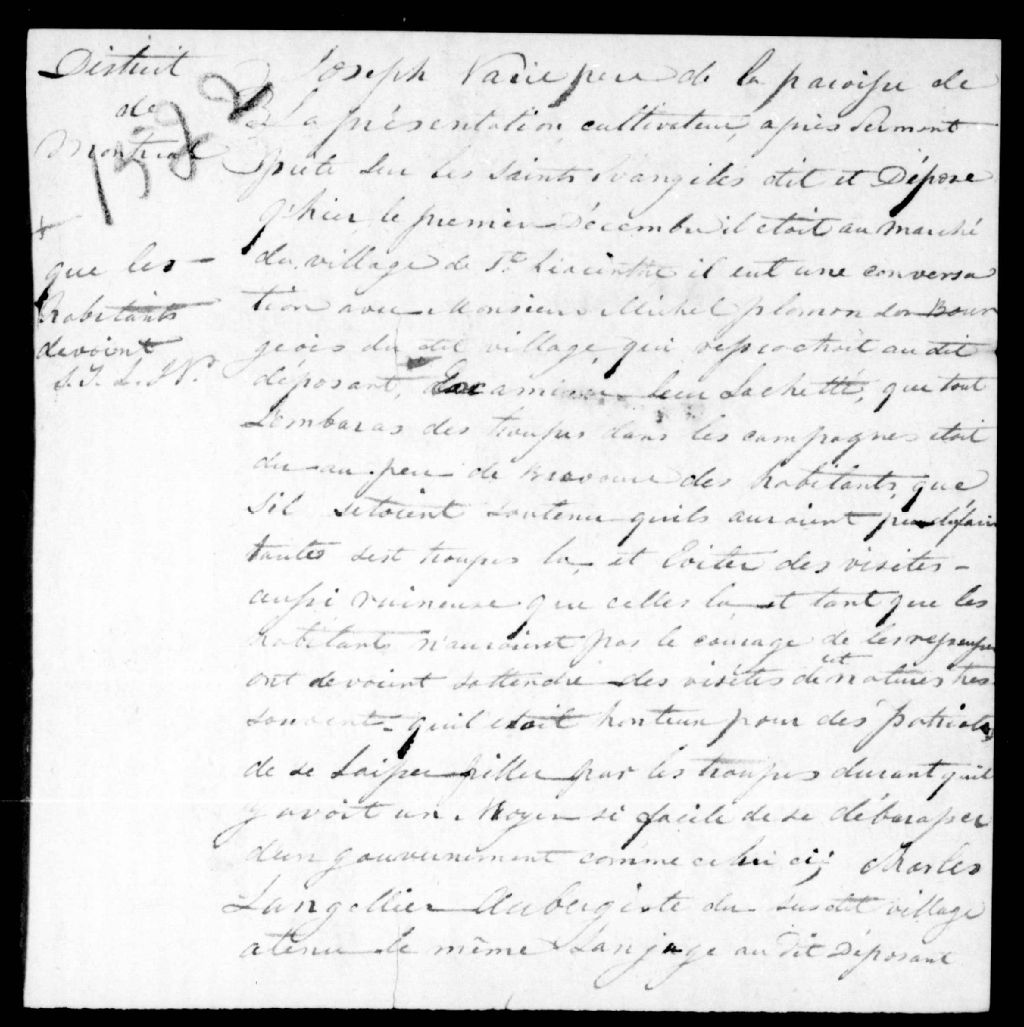 District
de
Montreal
1522
+
que les
habitants
devoint
Joseph pere de la paroisse de
La présentation, cultivateur, après serment
prété sur les Saints Evangiles dit et Dépose
q'hier le premier Décembre il etoit au marché
du village de St. hiacinthe il eut une conversa
tion avec Monsieur Michel plamondon Bour
geois du dit village, qui reprochoit au dit
déposant, leur lacheté, que tout
L'embaras des troupes dans les campagnes etoit
du au peu de Bravoure des habitants, que
s'il setoient soutenu quils auroient pu défair
toutes sest troupes la, et Eviter des visites
aussi ruineuse que celles la et tant que les
habitants n'auroint pas le courage de les
ont devoint sattendre des visites de natures tres
souvent quil etoit honteux pour des Patriotes
de se Laisser piller par les troupes durant quil
y avoit un Moyen si facile de se débarasser
d'un gouvernement comme celui ci; Charles
Langellier Aubergiste du susdit village
a tenu le même Lanjage au dit Déposant